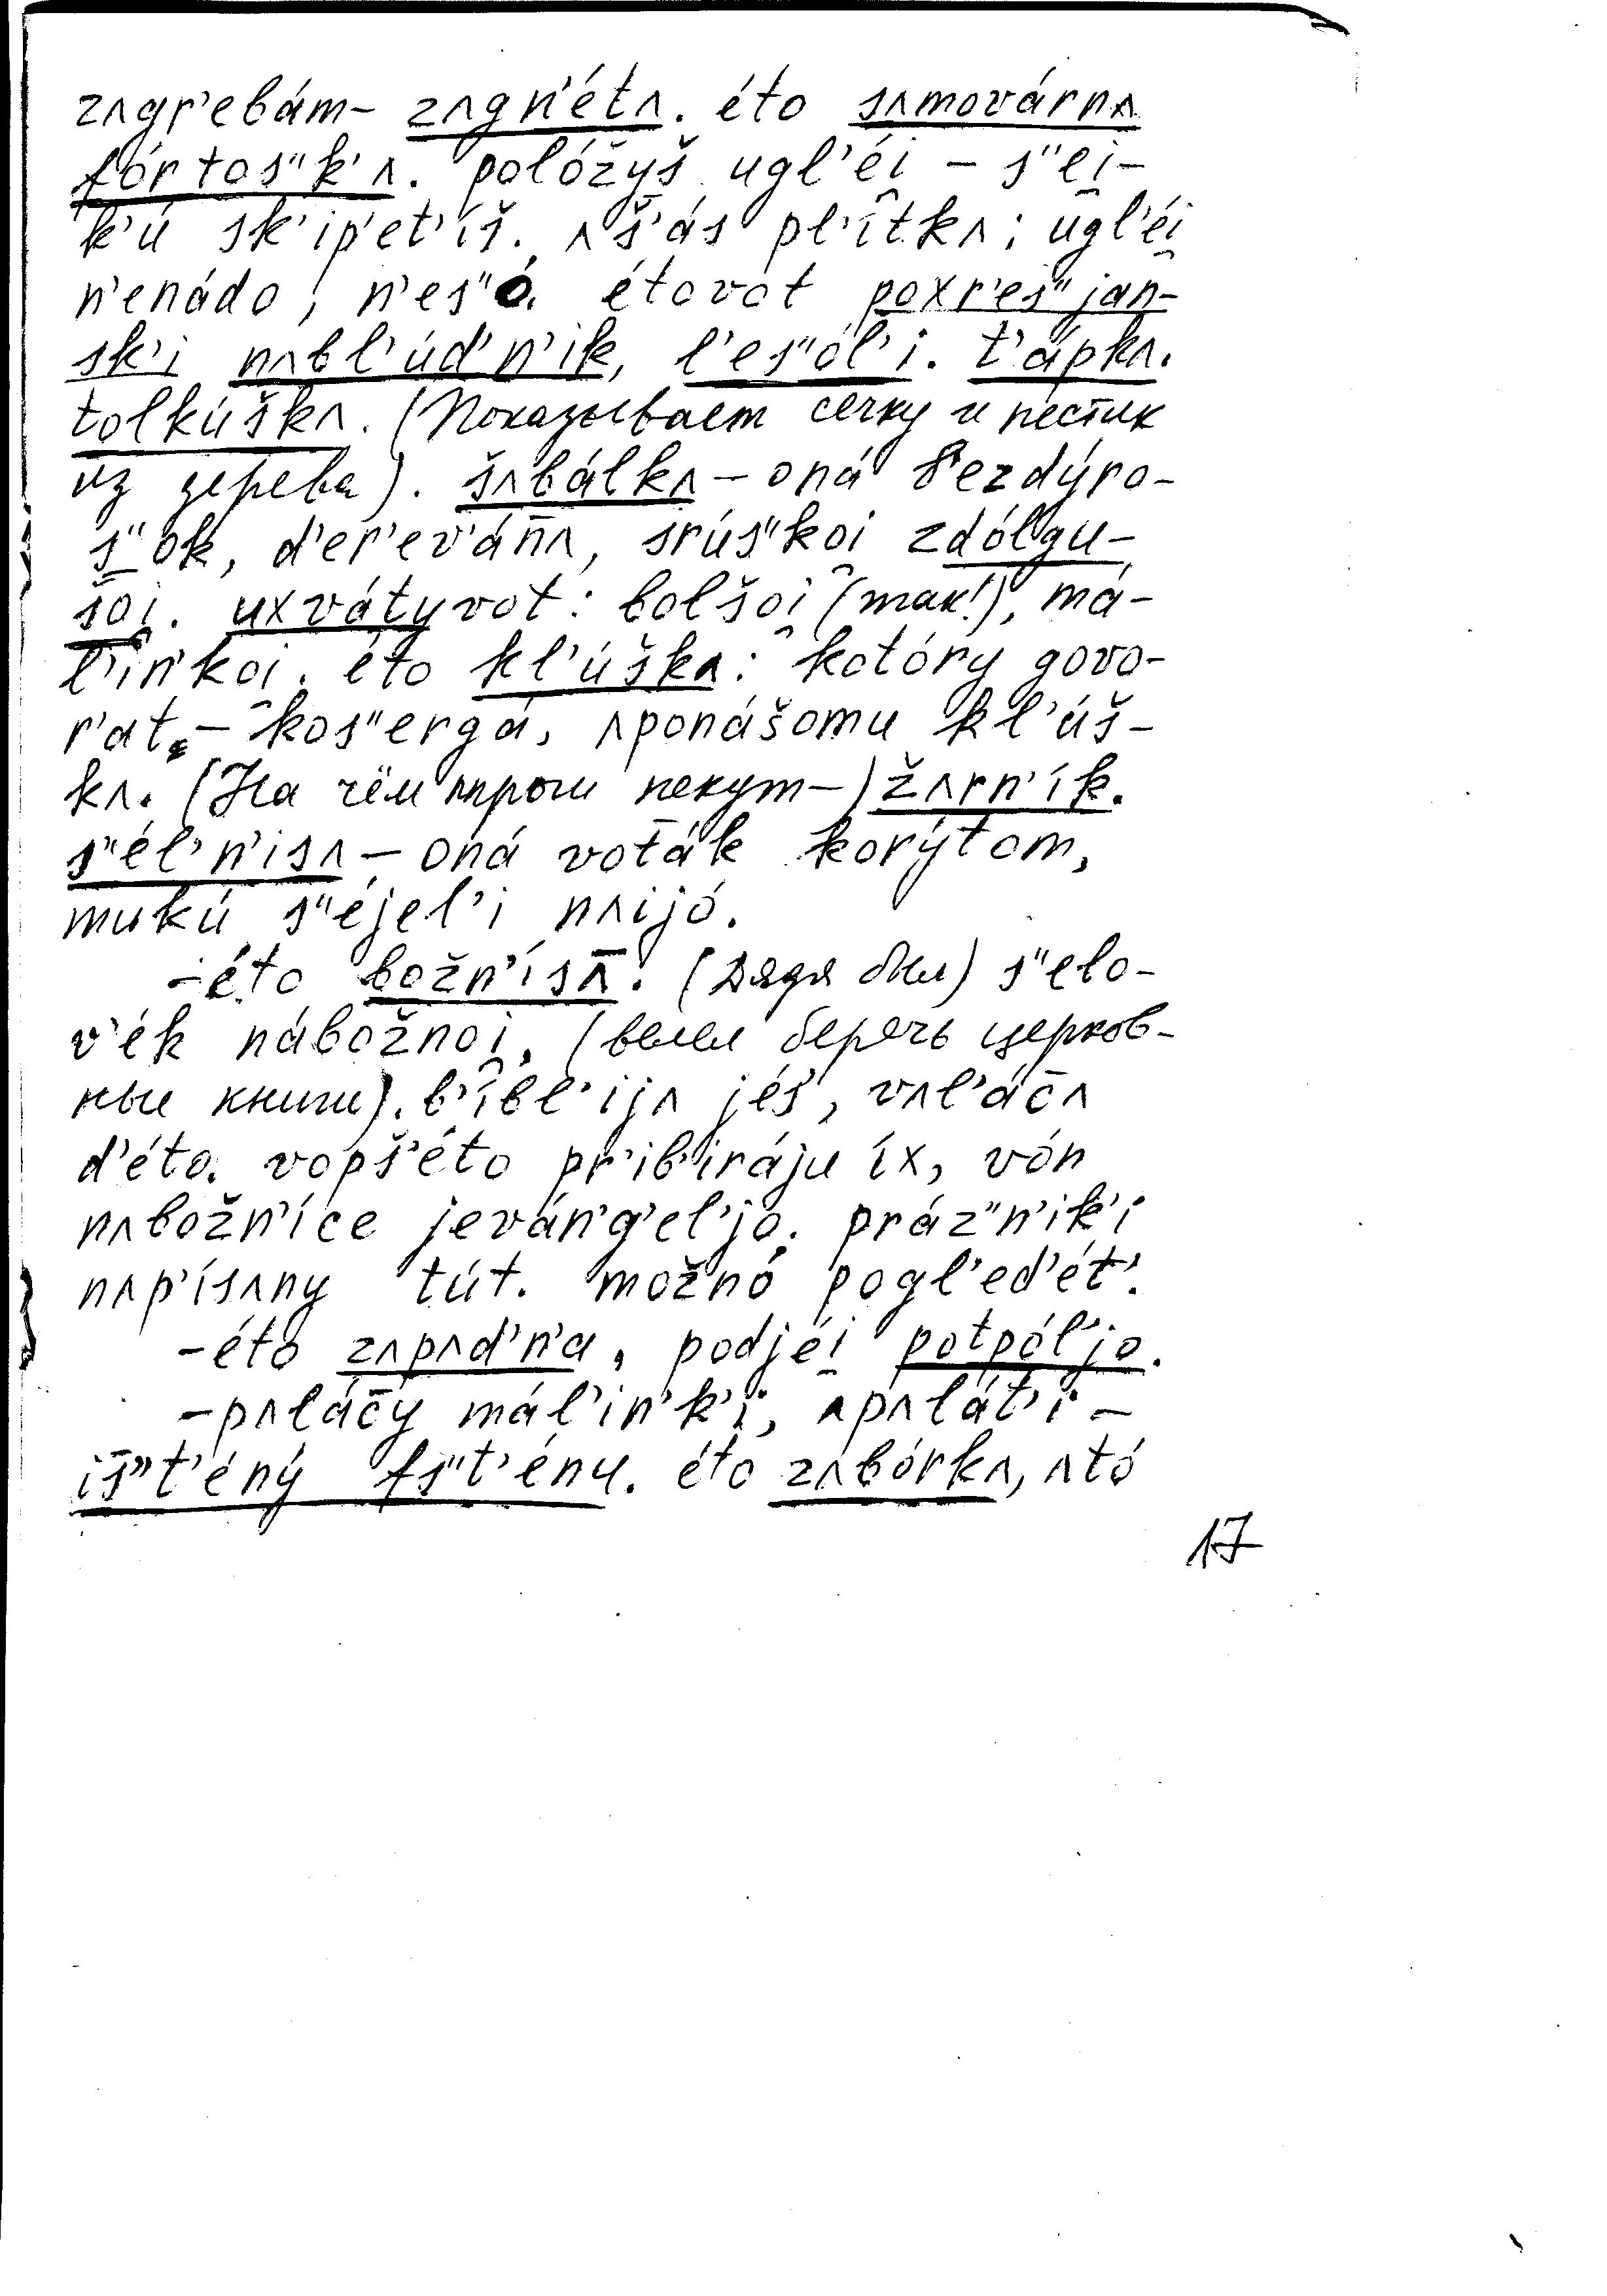 zʌgr'ebám– zʌgn'étʌ. éto sʌmovárnʌ
fórtos"k'ʌ. polóžyš ugl'éi̯ – s"ei̯–
k'ú sk'ip'et'íš. ʌš'ás pl'ítkʌ; ugl'éi̯
n'enádo, n'es"ó. étovot poxr'es"jan–
sk'i nʌbl'úd'n'ik, l'es"ól'i. t'ápkʌ.
tolkúškʌ. (Показывает сечку и пестик
из дерева). šʌbálkʌ – oná b'ezdýro–
s"ok, d'er'ev'án̄ʌ, srús"koi̯ zdólgu–
šoi̯. uxvátyvot: bolšoi̯ (так!), má–
l'in'koi̯. éto kl'úškʌ: kotóry govo–
r'at – kos"ergá, ʌponášomu kl'úš–
kʌ. (На чём пироги пекут–) žʌrn'ík.
s"él'n'isʌ – oná voták korýtom,
mukú s"éjel'i nʌijó.
– éto božn'ísʌ̄. (Дядя был) s"elo–
v'ék nábožnoi̯. (велел беречь церков–
ные книги). b'íbl'ijʌ jés', vʌl'ác̄ʌ
d'éto. vopš'éto pr'ib'iráju íx, vón
nʌbožn'íce jeván'g'el'jo. práz"n'ik'i
nʌp'ísʌny tút. možnó pogl'ed'ét'.
– éto zʌpʌd'n'a, podjéi̯ potpól'jo.
– pʌlác̄y mál'in'k'i, ʌpʌlát'i –
is̄"t'ény fs"t'énu. éto zʌbórkʌ, ʌtó
17